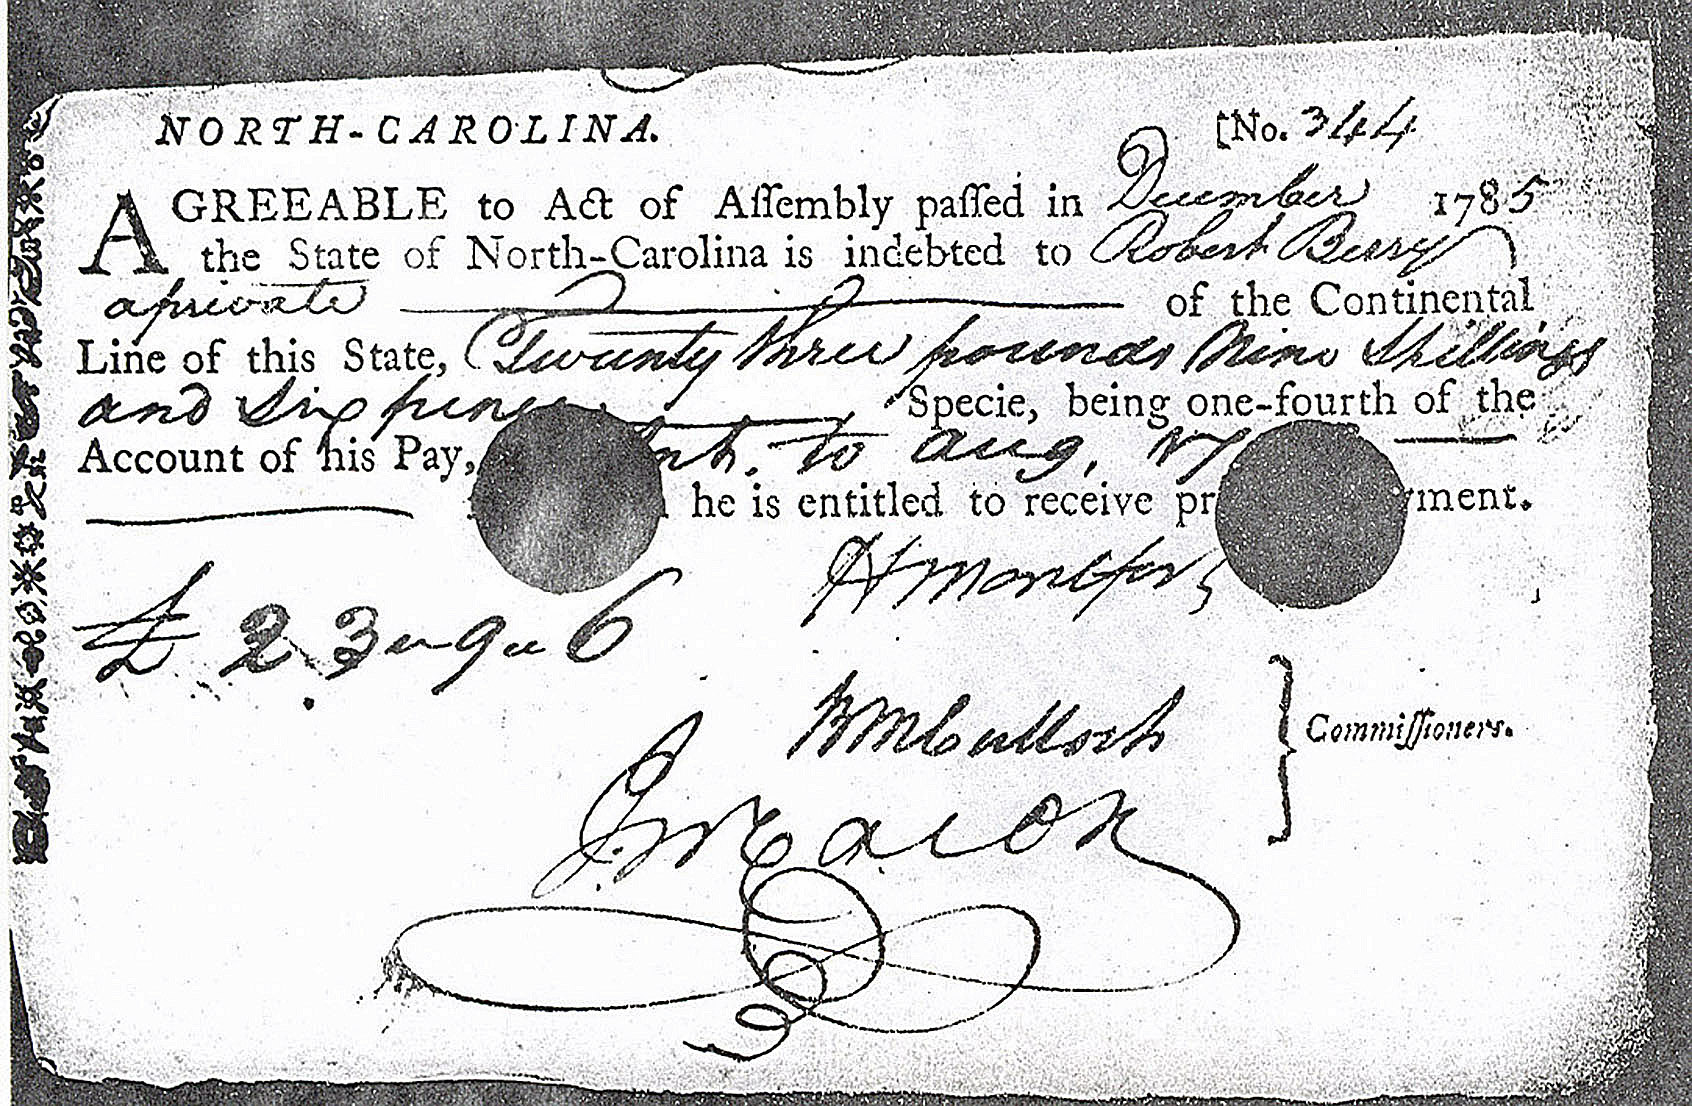 NORTH-CAROLINA. [No. 344
AGREEABLE to Act of Aſſembly paſſed in December 1785
the State of North-Carolina is indebted to Robert Berry
a private of the Continental
Line of this State, Twenty three pounds Nine Shillings
and Six pence Specie, being one-fourth of the
Account of his Pay, Int. to Aug, 17
he is entitled to receive pr yment.
H Montfort
£ 23 " 9 " 6
B McCulloch
Commiſſioners.
J. Macon